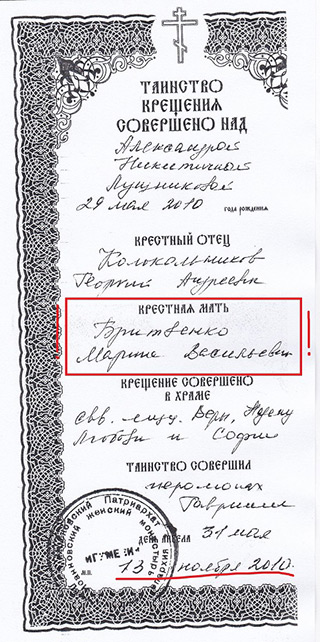 ТАИНСТВО
КРЕЩЕНИЯ
СОВЕРШЕНО НАД
Александрой
Никитичной
Лушниковой
29 мая 2010
ГОДА РОЖДЕНИЯ
КРЕСТНЫЙ ОТЕЦ
Колокольников
Георгий Андреевич
КРЕСТНАЯ МАТЬ
Бритвенко
Марина Васильевн
!
КРЕЩЕНИЕ СОВЕРШЕНО
В ХРАМЕ
свв. Веры, Надежд
Любови и Софии
ТАИНСТВО СОВЕРШИЛ
иеромонах
Гавриил
ДЕНЬ АНГЕЛА 31 мая
13 ноября 2010.
Патриархат
женский
монастырь
ИГУМЕНИЯ
М.П.